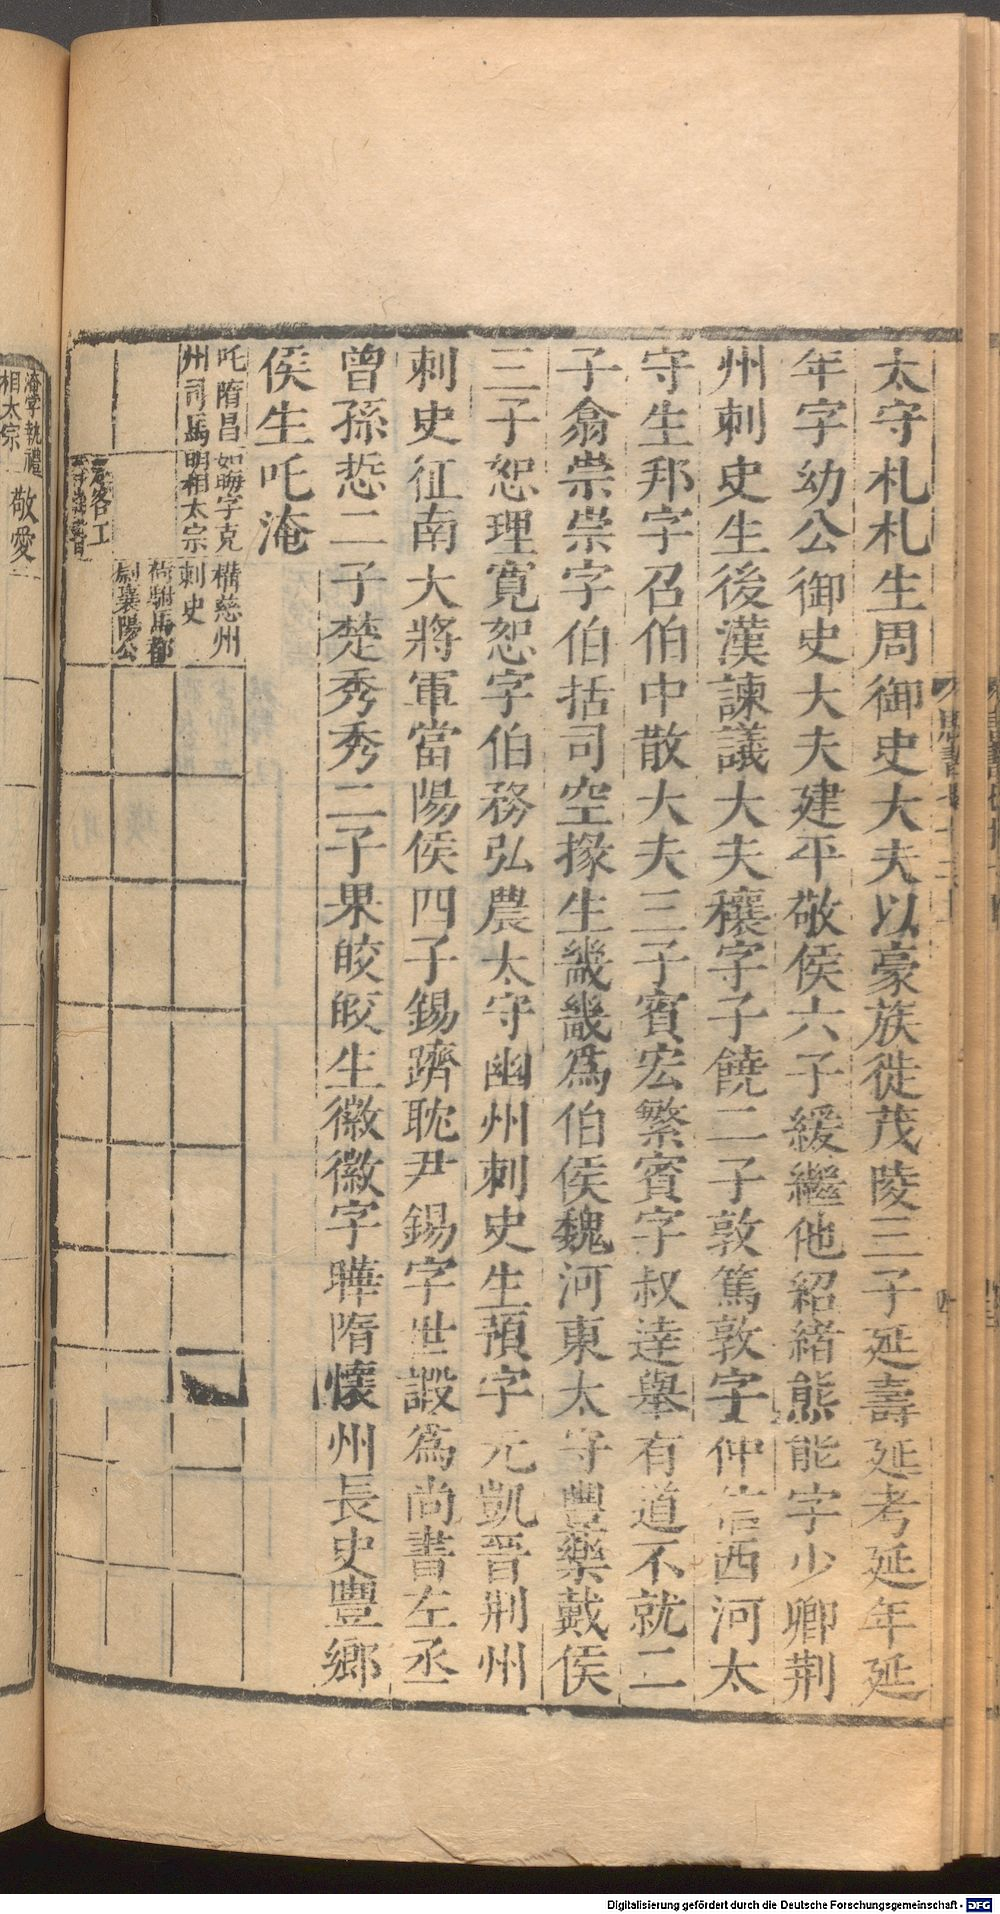 太守札札生周御史大夫以豪族徙茂陵三子延壽延考延年延
年字幼公御史大夫建平敬侯六子緩繼他紹緒熊熊字少卿荆
州刺史生後漢諫議大夫穰字子饒二子敦篤敦字仲信西河太
守生邦字召伯中散大夫三子賓宏繁賓字叔達舉有道不就二
子翕崇崇字伯括司空掾生畿畿為伯侯魏河東太守豐樂戴侯
三子恕理寬恕字伯務弘農太守幽州刺史生預字元凱晉荆州
刺史征南大將軍當陽侯四子錫躋耽尹錫字世嘏為尚書左丞
曾孫悊二子楚秀秀二子果皎皎生徽徽字曄隋懷州長史豐鄉
侯生吒淹
吒隋昌
州司馬
如晦字克
明相太宗
構慈州
刺史
荷駙馬都
尉襄陽公
楚客工
淹字執禮
相太宗
敬愛
四
Digitalisierung gefördert durch die Deutsche Forschungsgemeinschaft - DFG